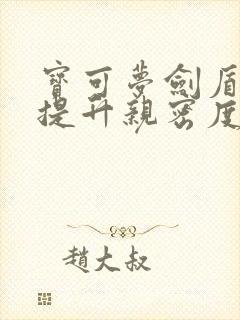 寶可夢劍盾
提升親密度
趙大叔